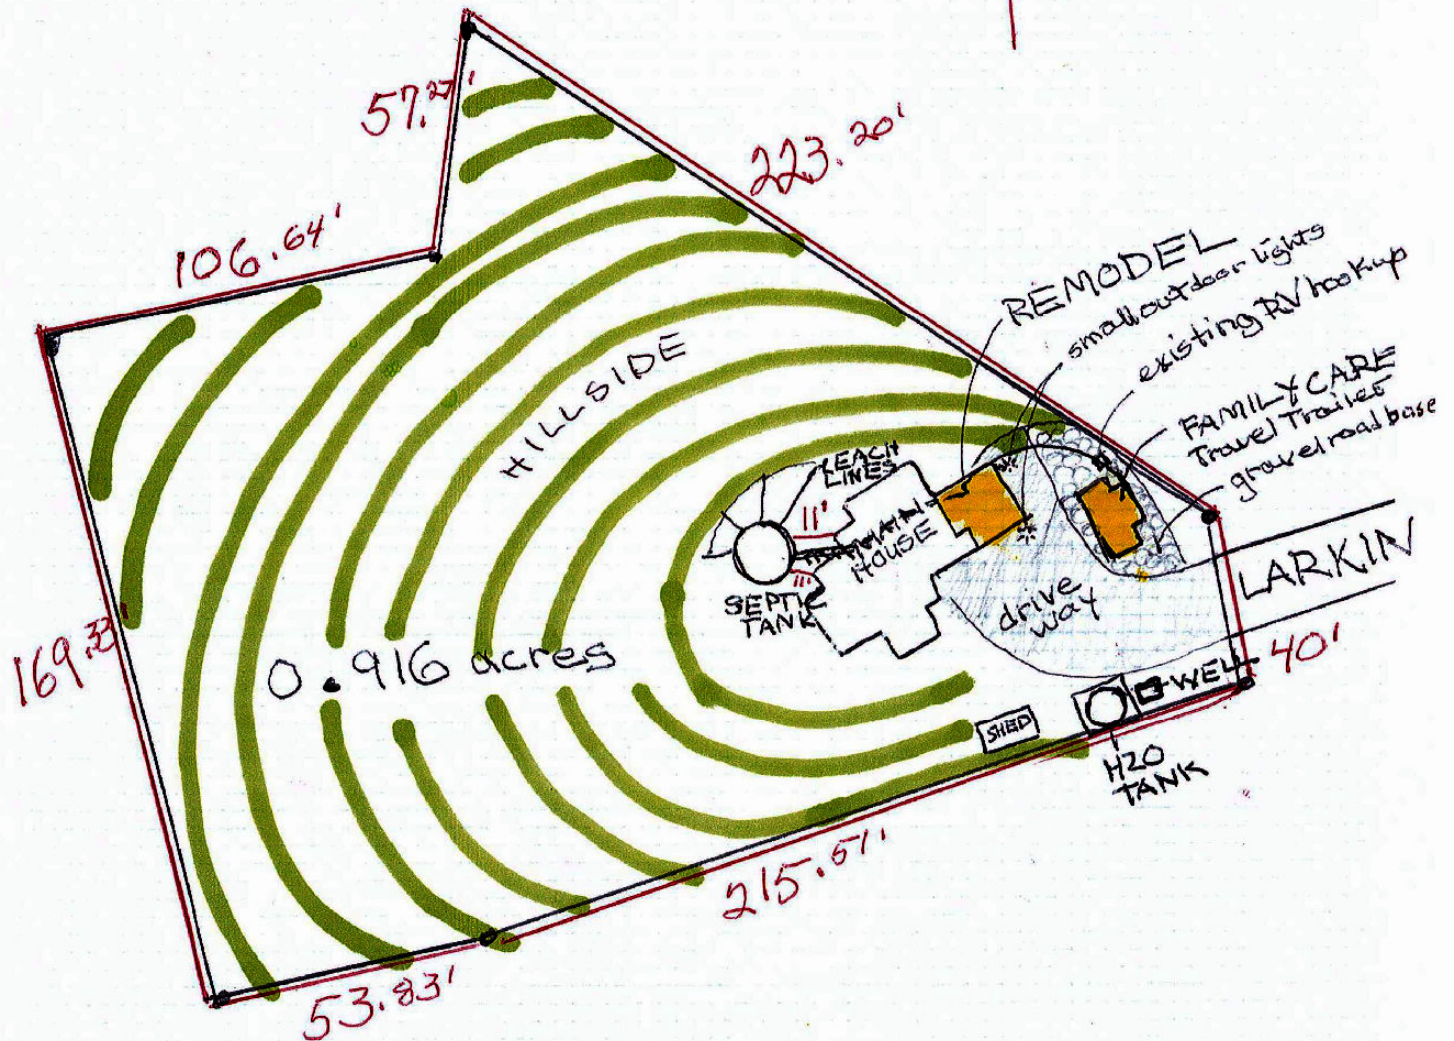 57.27'
223.20'
106.64'
REMODEL
small outdoor lights
existing RV hookup
FAMILY CARE
Travel Trailer
gravel road base
HILLSIDE
LEACH
LINES
11'
MAIN
HOUSE
11'
SEPTIC
TANK
drive
way
LARKIN
169.33
0.916 acres
40'
WELL
SHED
H2O
TANK
215.51'
53.83'